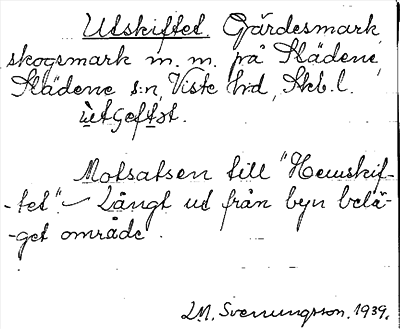 Utskiftet. Gärdesmark,
skogsmark m. m. på Slädene,
Slädene s:n, Viste h:d, Skb. l.
Motsatsen till "Hemskif-
-tet". - Långt ud från byn belä-
-get område.
L.M. Svenungsson. 1939.